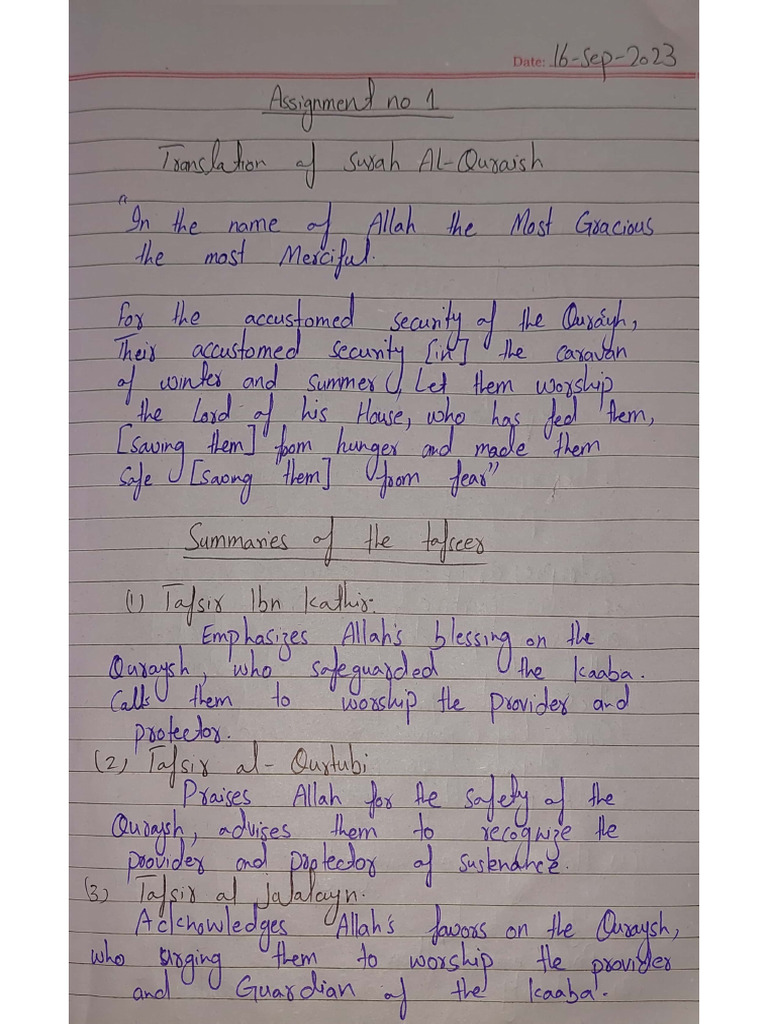 Date: 16-Sep-2023
Assignment no 1
Translation of Surah Al-Quraish
"In the name of Allah the Most Gracious
the most Merciful.
For the accustomed security of the Qurayh,
Their accustomed security [in] the caravan
of winter and summer, Let them worship
the Lord of his House, who has fed them,
[saving them] from hunger and made them
Safe [saving them] from fear"
Summaries of the tafseer
(1) Tafsir Ibn Kathir:
Emphasizes Allah's blessing on the
Quraysh, who safeguarded the Kaaba.
Calls them to worship the provider and
protector.
(2) Tafsir al-Qurtubi
Praises Allah for the safety of the
Quraysh, advises them to recognize the
provider and protector of sustenance.
(3) Tafsir al jalalayn.
Acknowledges Allah's favors on the Quraysh,
who urging them to worship the provider
and Guardian of the Kaaba.